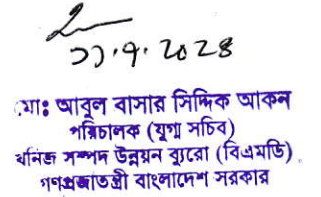 ১১.৭.২০২৪
মো: আবুল বাসার সিদ্দিক আকন
পরিচালক (যুগ্ম সচিব)
খনিজ সম্পদ উন্নয়ন ব্যুরো (বিএমডি)
গণপ্রজাতন্ত্রী বাংলাদেশ সরকার